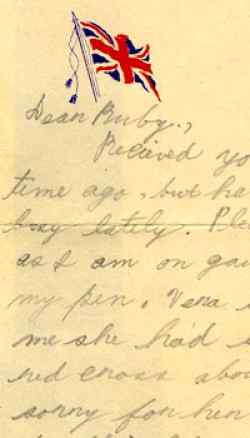 Dear Ruby.,
Recieved yo
time ago, but ha
busy lately. Plea
as I am on gau
my pen. Vera
me she had
red cross abou
sorry for her